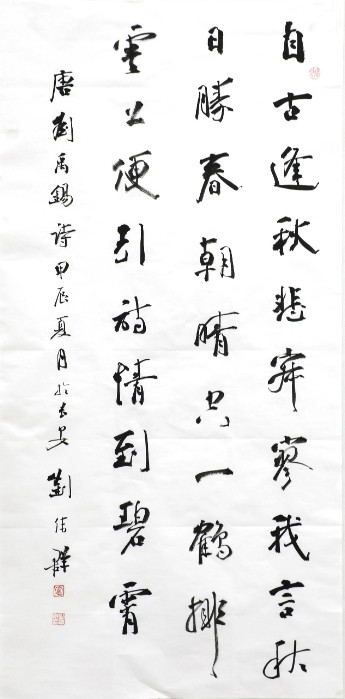 自古逢秋悲寂寥我言秋
日勝春朝晴空一鶴排
雲上便引詩情到碧霄
唐劉禹錫詩甲辰夏月於長安劉